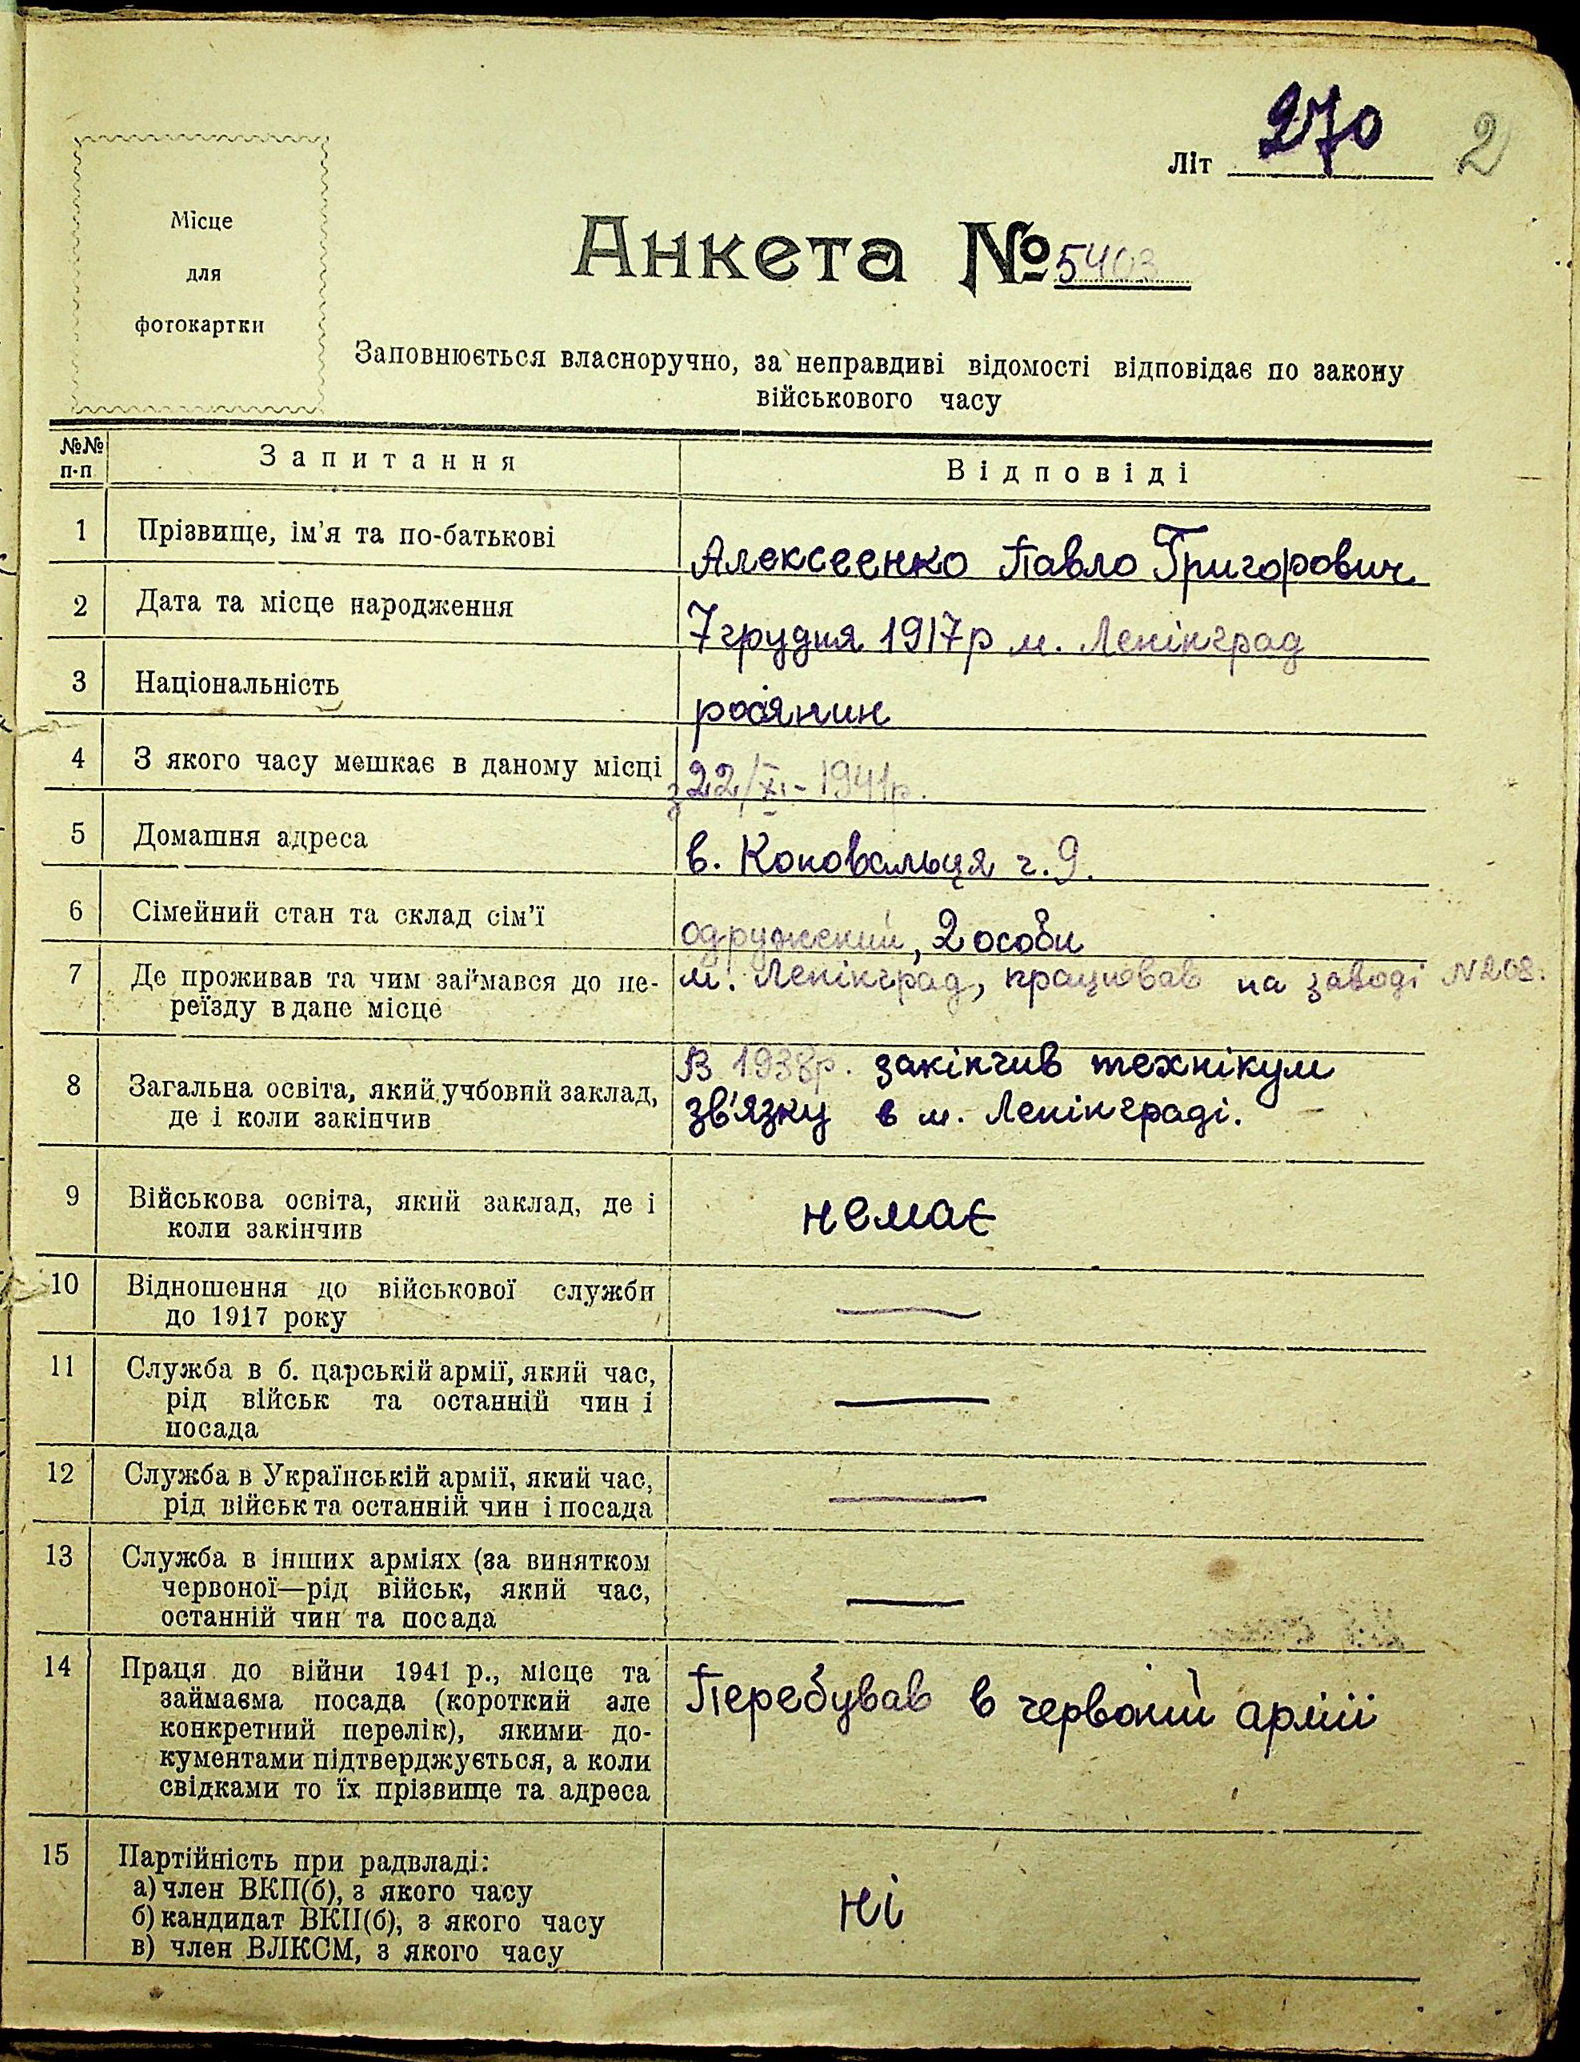 Літ 270 2
Місце
для
фотокартки
Анкета № 5403
Заповнюється власноручно, за неправдиві відомості відповідає по закону
військового часу
№№ п-п Запитання Відповіді
1 Прізвище, ім'я та по-батькові Алексеенко Павло Григорович
2 Дата та місце народження 7 грудня 1917р м. Ленінград
3 Національність росіянин
4 З якого часу мешкає в даному місці з 22/XI - 1941р.
5 Домашня адреса в. Коновальця ч. 9.
6 Сімейний стан та склад сім'ї одружений, 2 особи
7 Де проживав та чим займався до пе- м. Ленінград, працював на заводі N 208.
реїзду в дане місце
8 Загальна освіта, який учбовий заклад, В 1938р. закінчив технікум
де і коли закінчив зв'язку в м. Ленінграді.
9 Військова освіта, який заклад, де і немає
коли закінчив
10 Відношення до військової служби —
до 1917 року
11 Служба в б. царській армії, який час, —
рід військ та останній чин і
посада
12 Служба в Українській армії, який час, —
рід військ та останній чин і посада
13 Служба в інших арміях (за винятком —
червоної—рід військ, який час,
останній чин та посада
14 Праця до війни 1941 р., місце та Перебував в червоній армії
займаєма посада (короткий але
конкретний перелік), якими до-
кументами підтверджується, а коли
свідками то їх прізвище та адреса
15 Партійність при радвладі: ні
а) член ВКП(б), з якого часу
б) кандидат ВКП(б), з якого часу
в) член ВЛКСМ, з якого часу